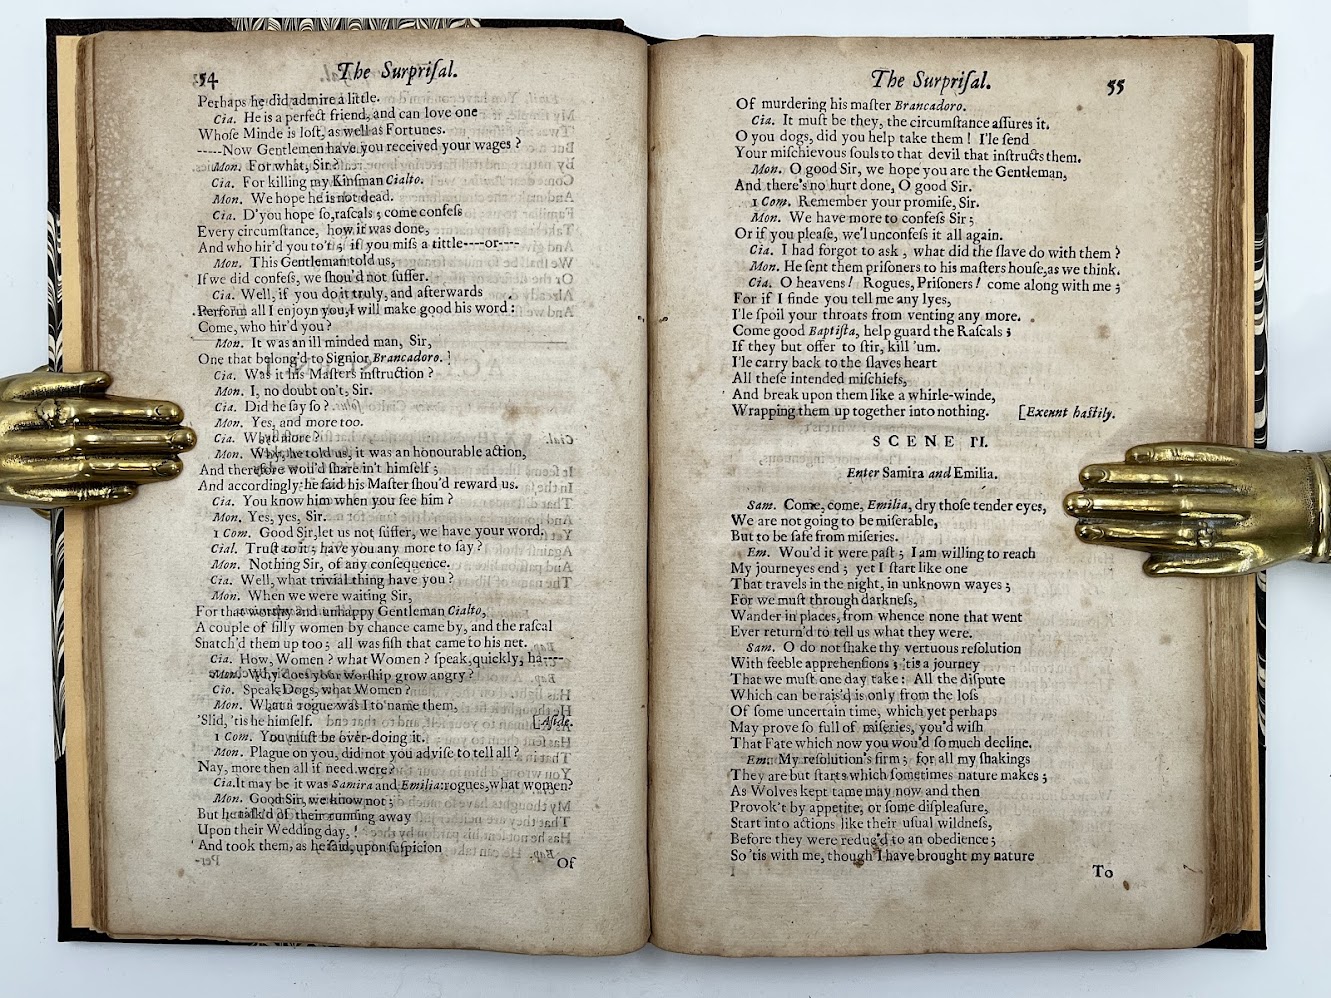 54
The Surpriſal.
Perhaps he did admire a little.
Cia. He is a perfect friend, and can love one
Whoſe Minde is loſt, as well as Fortunes.
-----Now Gentlemen have you received your wages ?
Mon. For what, Sir ?
Cia. For killing my Kinſman Cialto.
Mon. We hope he is not dead.
Cia. D'you hope ſo, raſcals ; come confeſs
Every circumſtance, how it was done,
And who hir'd you to't ; if you miſs a tittle----or----
Mon. This Gentleman told us,
If we did confeſs, we ſhou'd not ſuffer.
Cia. Well, if you do it truly, and afterwards
Perform all I enjoyn you, I will make good his word :
Come, who hir'd you ?
Mon. It was an ill minded man, Sir,
One that belong'd to Signior Brancadoro. !
Cia. Was it his Maſters inſtruction ?
Mon. I, no doubt on't, Sir.
Cia. Did he ſay ſo ?
Mon. Yes, and more too.
Cia. What more ?
Mon. Why, he told us, it was an honourable action,
And therefore wou'd ſhare in't himſelf ;
And accordingly he ſaid his Maſter ſhou'd reward us.
Cia. You know him when you ſee him ?
Mon. Yes, yes, Sir.
1 Com. Good Sir, let us not ſuffer, we have your word.
Cial. Truſt to it ; have you any more to ſay ?
Mon. Nothing Sir, of any conſequence.
Cia. Well, what trivial thing have you ?
Mon. When we were waiting Sir,
For that worthy and unhappy Gentleman Cialto,
A couple of ſilly women by chance came by, and the raſcal
Snatch'd them up too ; all was fiſh that came to his net.
Cia. How, Women ? what Women ? ſpeak quickly, ha----
Mon. Why does your worſhip grow angry ?
Cio. Speak Dogs, what Women ?
Mon. What a rogue was I to name them,
'Slid, 'tis he himſelf. [Aſide.
1 Com. You muſt be over-doing it.
Mon. Plague on you, did not you adviſe to tell all ?
Nay, more then all if need were ?
Cia. It may be it was Samira and Emilia: rogues, what women?
Mon. Good Sir, we know not ;
But he talk'd of their running away
Upon their Wedding day, !
And took them, as he ſaid, upon ſuſpicion
Of
The Surpriſal.
55
Of murdering his maſter Brancadoro.
Cia. It muſt be they, the circumſtance aſſures it.
O you dogs, did you help take them ! I'le ſend
Your miſchievous ſouls to that devil that inſtructs them.
Mon. O good Sir, we hope you are the Gentleman,
And there's no hurt done, O good Sir.
1 Com. Remember your promiſe, Sir.
Mon. We have more to confeſs Sir ;
Or if you pleaſe, we'l unconfeſs it all again.
Cia. I had forgot to ask , what did the ſlave do with them ?
Mon. He ſent them priſoners to his maſters houſe, as we think.
Cia. O heavens ! Rogues, Priſoners ! come along with me ;
For if I finde you tell me any lyes,
I'le ſpoil your throats from venting any more.
Come good Baptiſta, help guard the Raſcals ;
If they but offer to ſtir, kill 'um.
I'le carry back to the ſlaves heart
All theſe intended miſchiefs,
And break upon them like a whirle-winde,
Wrapping them up together into nothing. [Exeunt haſtily.
SCENE II.
Enter Samira and Emilia.
Sam. Come, come, Emilia, dry thoſe tender eyes,
We are not going to be miſerable,
But to be ſafe from miſeries.
Em. Wou'd it were paſt ; I am willing to reach
My journeyes end ; yet I ſtart like one
That travels in the night, in unknown wayes ;
For we muſt through darkneſs,
Wander in places, from whence none that went
Ever return'd to tell us what they were.
Sam. O do not ſhake thy vertuous reſolution
With feeble apprehenſions ; 'tis a journey
That we muſt one day take : All the diſpute
Which can be rais'd is only from the loſs
Of ſome uncertain time, which yet perhaps
May prove ſo full of miſeries, you'd wiſh
That Fate which now you wou'd ſo much decline.
Em. My reſolution's firm ; for all my ſhakings
They are but ſtarts which ſometimes nature makes ;
As Wolves kept tame may now and then
Provok't by appetite, or ſome diſpleaſure,
Start into actions like their uſual wildneſs,
Before they were reduc'd to an obedience ;
So 'tis with me, though I have brought my nature
To